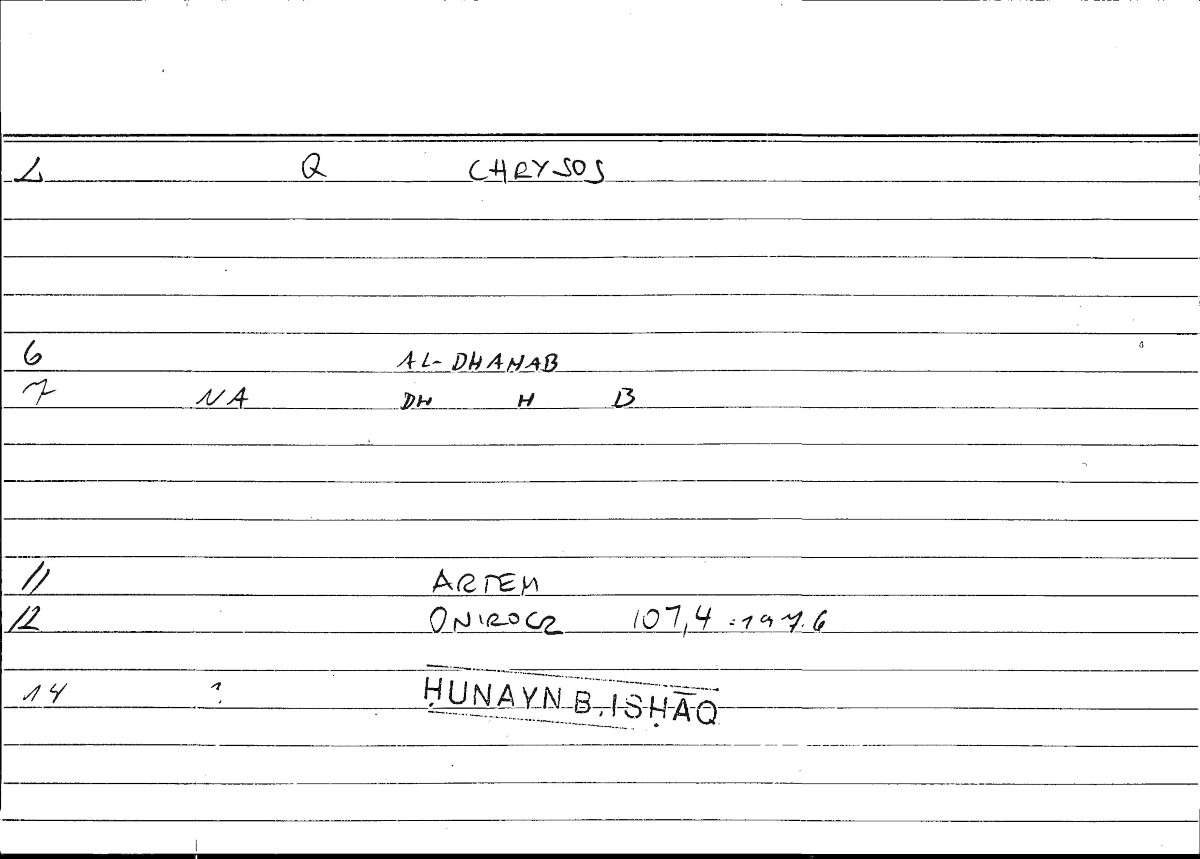 1 Q CHRYSOS
6 AL-DHAHAB
7 NA DH H B
11 ARTEM
12 ONIROCR 107,4 : 197.6
14 ? ḤUNAYN B. ISḤĀQ